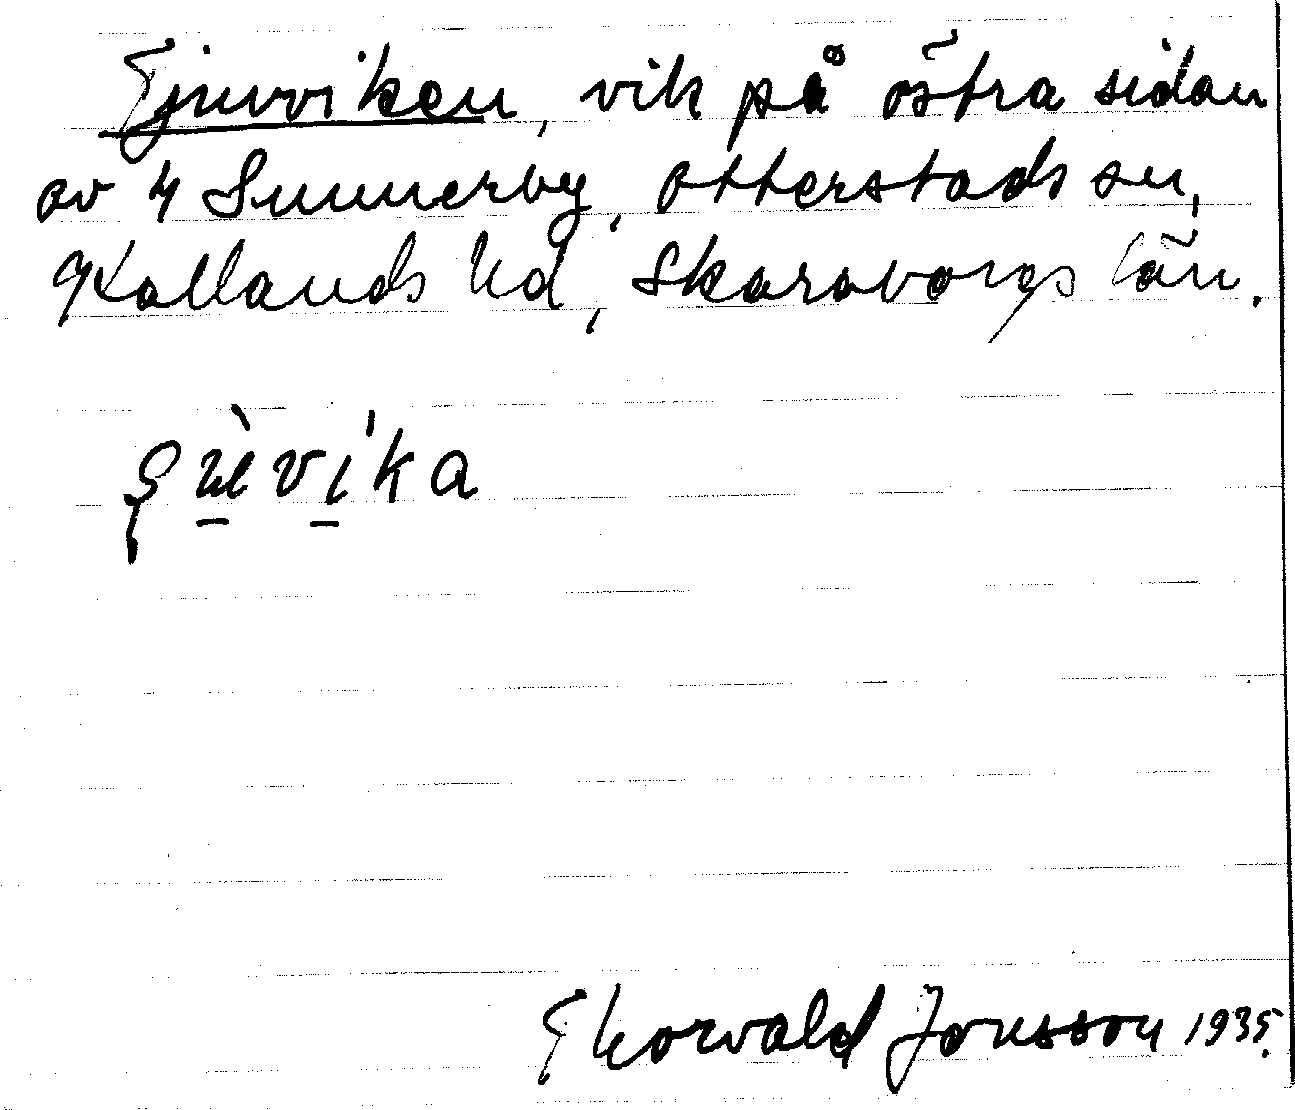 Tjuvviken, vik på östra sidan
av 4 Sunnerby, Otterstads sn,
Kållands hd, Skaraborgs län.
Thorvald Jonsson 1935.